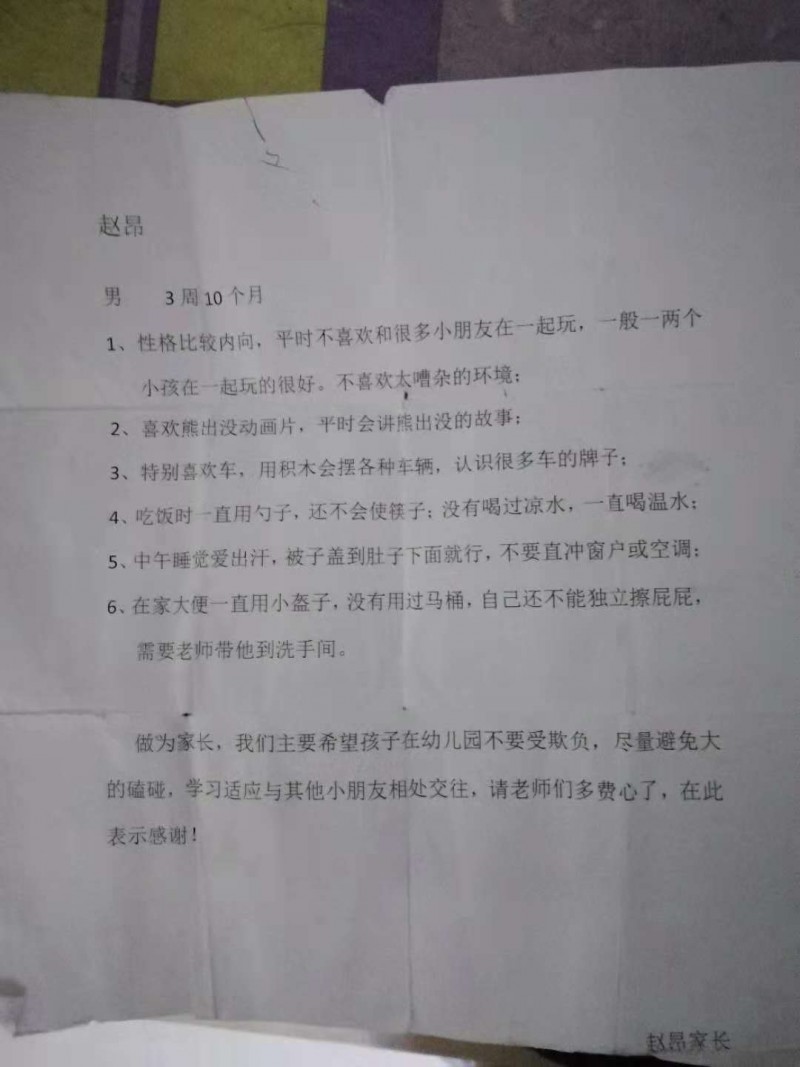 赵昂
男 3周10个月
1、性格比较内向，平时不喜欢和很多小朋友在一起玩，一般一两个
小孩在一起玩的很好。不喜欢太嘈杂的环境；
2、喜欢熊出没动画片，平时会讲熊出没的故事；
3、特别喜欢车，用积木会摆各种车辆，认识很多车的牌子；
4、吃饭时一直用勺子，还不会使筷子；没有喝过凉水，一直喝温水；
5、中午睡觉爱出汗，被子盖到肚子下面就行，不要直冲窗户或空调；
6、在家大便一直用小盔子，没有用过马桶，自己还不能独立擦屁屁，
需要老师带他到洗手间。
做为家长，我们主要希望孩子在幼儿园不要受欺负，尽量避免大
的磕碰，学习适应与其他小朋友相处交往，请老师们多费心了，在此
表示感谢！
赵昂家长